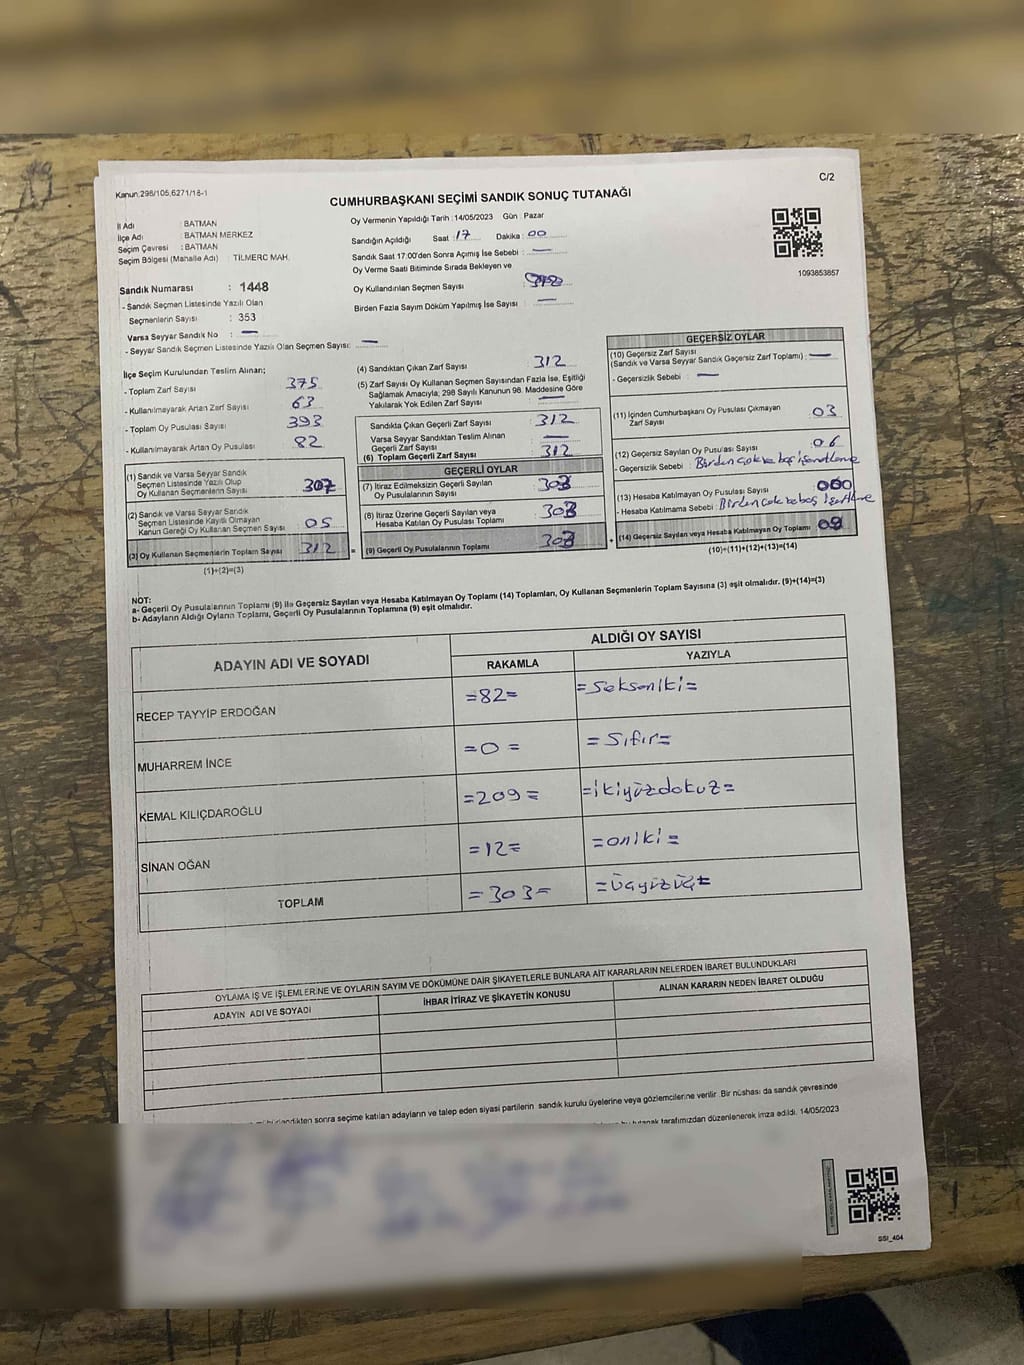 Kanun.298/105,6271/18-1
C/2
CUMHURBAŞKANI SEÇİMİ SANDIK SONUÇ TUTANAĞI
İl Adı : BATMAN
İlçe Adı : BATMAN MERKEZ
Seçim Çevresi : BATMAN
Seçim Bölgesi (Mahalle Adı) : TİLMERC MAH.
Oy Vermenin Yapıldığı Tarih : 14/05/2023 Gün : Pazar
Sandığın Açıldığı Saat : 17 Dakika : 00
Sandık Saat 17:00'den Sonra Açımış İse Sebebi : —
Oy Verme Saati Bitiminde Sırada Bekleyen ve
Oy Kullandırılan Seçmen Sayısı :
Birden Fazla Sayım Döküm Yapılmış İse Sayısı : —
1093853857
Sandık Numarası : 1448
- Sandık Seçmen Listesinde Yazılı Olan
Seçmenlerin Sayısı : 353
Varsa Seyyar Sandık No : —
- Seyyar Sandık Seçmen Listesinde Yazılı Olan Seçmen Sayısı: —
İlçe Seçim Kurulundan Teslim Alınan;
- Toplam Zarf Sayısı : 375
- Kullanılmayarak Artan Zarf Sayısı : 63
- Toplam Oy Pusulası Sayısı : 393
- Kullanılmayarak Artan Oy Pusulası : 82
(1) Sandık ve Varsa Seyyar Sandık
Seçmen Listesinde Yazılı Olup
Oy Kullanan Seçmenlerin Sayısı 307
(2) Sandık ve Varsa Seyyar Sandık
Seçmen Listesinde Kayıtlı Olmayan
Kanun Gereği Oy Kullanan Seçmen Sayısı : 05
(3) Oy Kullanan Seçmenlerin Toplam Sayısı : 312 =
(1)+(2)=(3)
(4) Sandıktan Çıkan Zarf Sayısı : 312
(5) Zarf Sayısı Oy Kullanan Seçmen Sayısından Fazla İse, Eşitliği
Sağlamak Amacıyla; 298 Sayılı Kanunun 98. Maddesine Göre
Yakılarak Yok Edilen Zarf Sayısı : —
Sandıkta Çıkan Geçerli Zarf Sayısı : 312
Varsa Seyyar Sandıktan Teslim Alınan
Geçerli Zarf Sayısı : —
(6) Toplam Geçerli Zarf Sayısı : 312
GEÇERLİ OYLAR
(7) İtiraz Edilmeksizin Geçerli Sayılan
Oy Pusulalarının Sayısı : 303
(8) İtiraz Üzerine Geçerli Sayılan veya
Hesaba Katılan Oy Pusulası Toplamı : 303
(9) Geçerli Oy Pusulalarının Toplamı : 303 +
GEÇERSİZ OYLAR
(10) Geçersiz Zarf Sayısı
(Sandık ve Varsa Seyyar Sandık Geçersiz Zarf Toplamı) : —
- Geçersizlik Sebebi : —
(11) İçinden Cumhurbaşkanı Oy Pusulası Çıkmayan
Zarf Sayısı : 03
(12) Geçersiz Sayılan Oy Pusulası Sayısı : 06
- Geçersizlik Sebebi : Birden çok ve boş işaretleme
(13) Hesaba Katılmayan Oy Pusulası Sayısı : 000
- Hesaba Katılmama Sebebi : Birden çok ve boş
(14) Geçersiz Sayılan veya Hesaba Katılmayan Oy Toplamı : 09
(10)+(11)+(12)+(13)=(14)
NOT:
a- Geçerli Oy Pusulalarının Toplamı (9) ile Geçersiz Sayılan veya Hesaba Katılmayan Oy Toplamı (14) Toplamları, Oy Kullanan Seçmenlerin Toplam Sayısına (3) eşit olmalıdır. (9)+(14)=(3)
b- Adayların Aldığı Oyların Toplamı, Geçerli Oy Pusulalarının Toplamına (9) eşit olmalıdır.
ADAYIN ADI VE SOYADI ALDIĞI OY SAYISI
RAKAMLA YAZIYLA
RECEP TAYYİP ERDOĞAN =82= =Seksoniki=
MUHARREM İNCE =0= =Sıfır=
KEMAL KILIÇDAROĞLU =209= =ikiyüzdokuz=
SİNAN OĞAN =12= =oniki=
TOPLAM =303= =Üçyüzüç=
OYLAMA İŞ VE İŞLEMLERİNE VE OYLARIN SAYIM VE DÖKÜMÜNE DAİR ŞİKAYETLERLE BUNLARA AİT KARARLARIN NELERDEN İBARET BULUNDUKLARI
ADAYIN ADI VE SOYADI İHBAR İTİRAZ VE ŞİKAYETİN KONUSU ALINAN KARARIN NEDEN İBARET OLDUĞU
sonra seçime katılan adayların ve talep eden siyasi partilerin sandık kurulu üyelerine veya gözlemcilerine verilir. Bir nüshası da sandık çevresinde
tutanak tarafımızdan düzenlenerek imza edildi. 14/05/2023
SSI_404